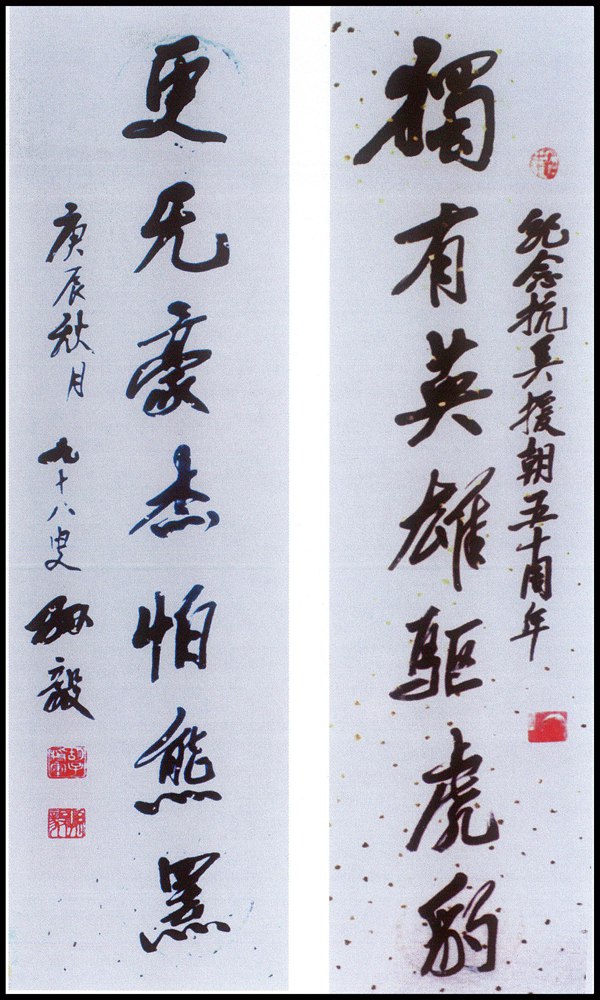 纪念抗美援朝五十周年
獨有英雄驱虎豹
更无豪杰怕熊罴
庚辰秋月 九十八叟 孙毅